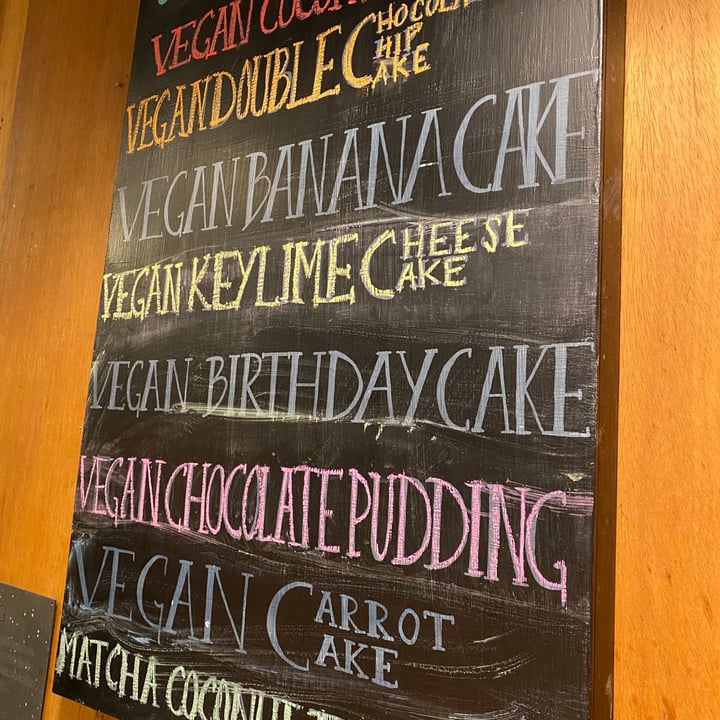 VEGAN
VEGAN DOUBLE CHOCOLATE CHIP CAKE
VEGAN BANANA CAKE
VEGAN KEYLIME CHEESE CAKE
VEGAN BIRTHDAY CAKE
VEGAN CHOCOLATE PUDDING
VEGAN CARROT CAKE
MATCHA COCONUT